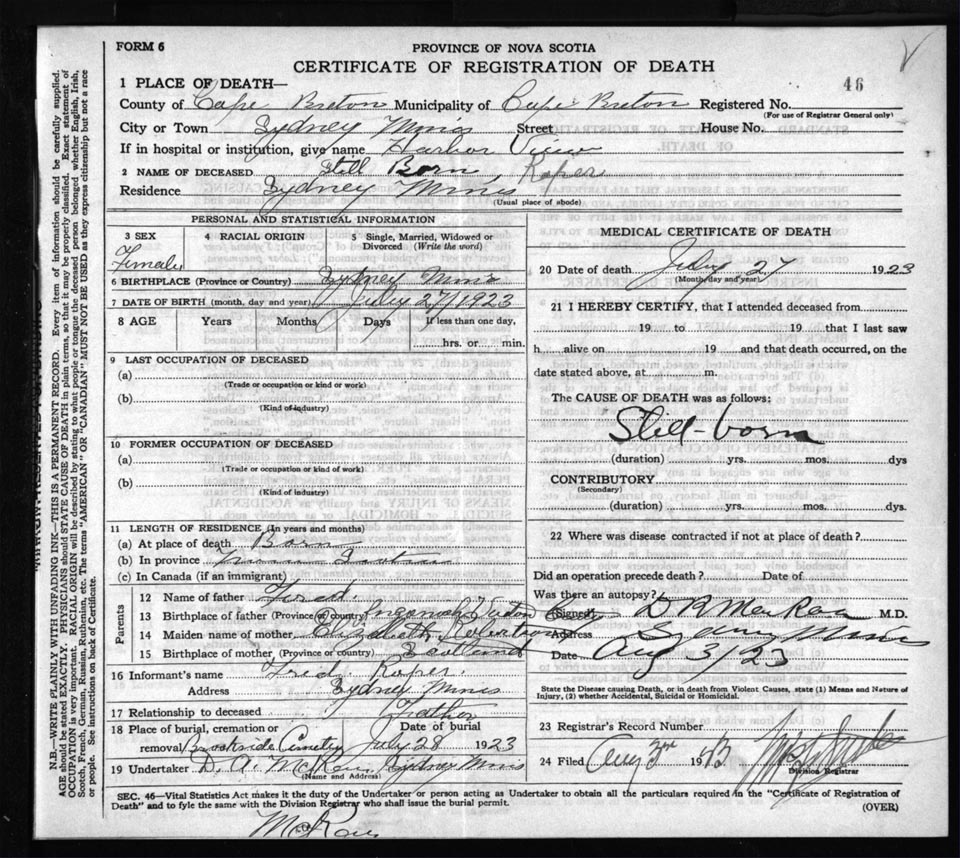 FORM 6
PROVINCE OF NOVA SCOTIA
CERTIFICATE OF REGISTRATION OF DEATH
46
1 PLACE OF DEATH—
County of Cape Breton Municipality of Cape Breton Registered No.
(For use of Registrar General only)
City or Town Sydney Mines Street House No.
If in hospital or institution, give name Harbor View
2 NAME OF DECEASED Still Born Roper
Residence Sydney Mines
(Usual place of abode)
PERSONAL AND STATISTICAL INFORMATION
3 SEX 4 RACIAL ORIGIN 5 Single, Married, Widowed or Divorced (Write the word)
Female
6 BIRTHPLACE (Province or Country) Sydney Mines
7 DATE OF BIRTH (month, day and year) July 27/1923
8 AGE Years Months Days If less than one day,
hrs. or min.
9 LAST OCCUPATION OF DECEASED
(a)
(Trade or occupation or kind or work)
(b)
(Kind of industry)
10 FORMER OCCUPATION OF DECEASED
(a)
(Trade or occupation or kind of work)
(b)
(Kind of industry)
11 LENGTH OF RESIDENCE (In years and months)
(a) At place of death Born
(b) In province Nova Scotia
(c) In Canada (if an immigrant)
Parents
12 Name of father Fred.
13 Birthplace of father (Province or country) Ingonish
14 Maiden name of mother Elizabeth Robertson
15 Birthplace of mother (Province or country) Scotland
16 Informant's name Fred. Roper
Address Sydney Mines
17 Relationship to deceased Father
18 Place of burial, cremation or removal Brookside Cemetery Date of burial July 28 1923
19 Undertaker D. A. McRae, Sydney Mines
(Name and Address)
MEDICAL CERTIFICATE OF DEATH
20 Date of death July 27 1923
(Month, day and year)
21 I HEREBY CERTIFY, that I attended deceased from
19 to 19 that I last saw
h alive on 19 and that death occurred, on the
date stated above, at m.
The CAUSE OF DEATH was as follows:
Still-born
(duration) yrs. mos. dys
CONTRIBUTORY
(Secondary)
(duration) yrs. mos. dys.
22 Where was disease contracted if not at place of death?
Did an operation precede death? Date of
Was there an autopsy?
(Signed) D R MacRae M.D.
Address Sydney Mines
Date Aug 3/23
State the Disease causing Death, or in death from Violent Causes, state (1) Means and Nature of
Injury, (2) whether Accidental, Suicidal or Homicidal.
23 Registrar's Record Number
24 Filed Aug 3rd 1923
Division Registrar
SEC. 46—Vital Statistics Act makes it the duty of the Undertaker or person acting as Undertaker to obtain all the particulars required in the "Certificate of Registration of
Death" and to fyle the same with the Division Registrar who shall issue the burial permit.
(OVER)
McRae
N.B.—WRITE PLAINLY WITH UNFADING INK—THIS IS A PERMANENT RECORD. Every item of information should be carefully supplied.
AGE should be stated EXACTLY. PHYSICIANS should STATE CAUSE OF DEATH in plain terms, so that it may be properly classified. Exact statement of
OCCUPATION is very important. RACIAL ORIGIN will be described by stating to what people or tongue the deceased person belonged whether English, Irish,
Scotch, French, German, Russian, Ruthenian, etc. The terms "AMERICAN" OR "CANADIAN" MUST NOT BE USED as they express citizenship but not a race
or people. See instructions on back of Certificate.